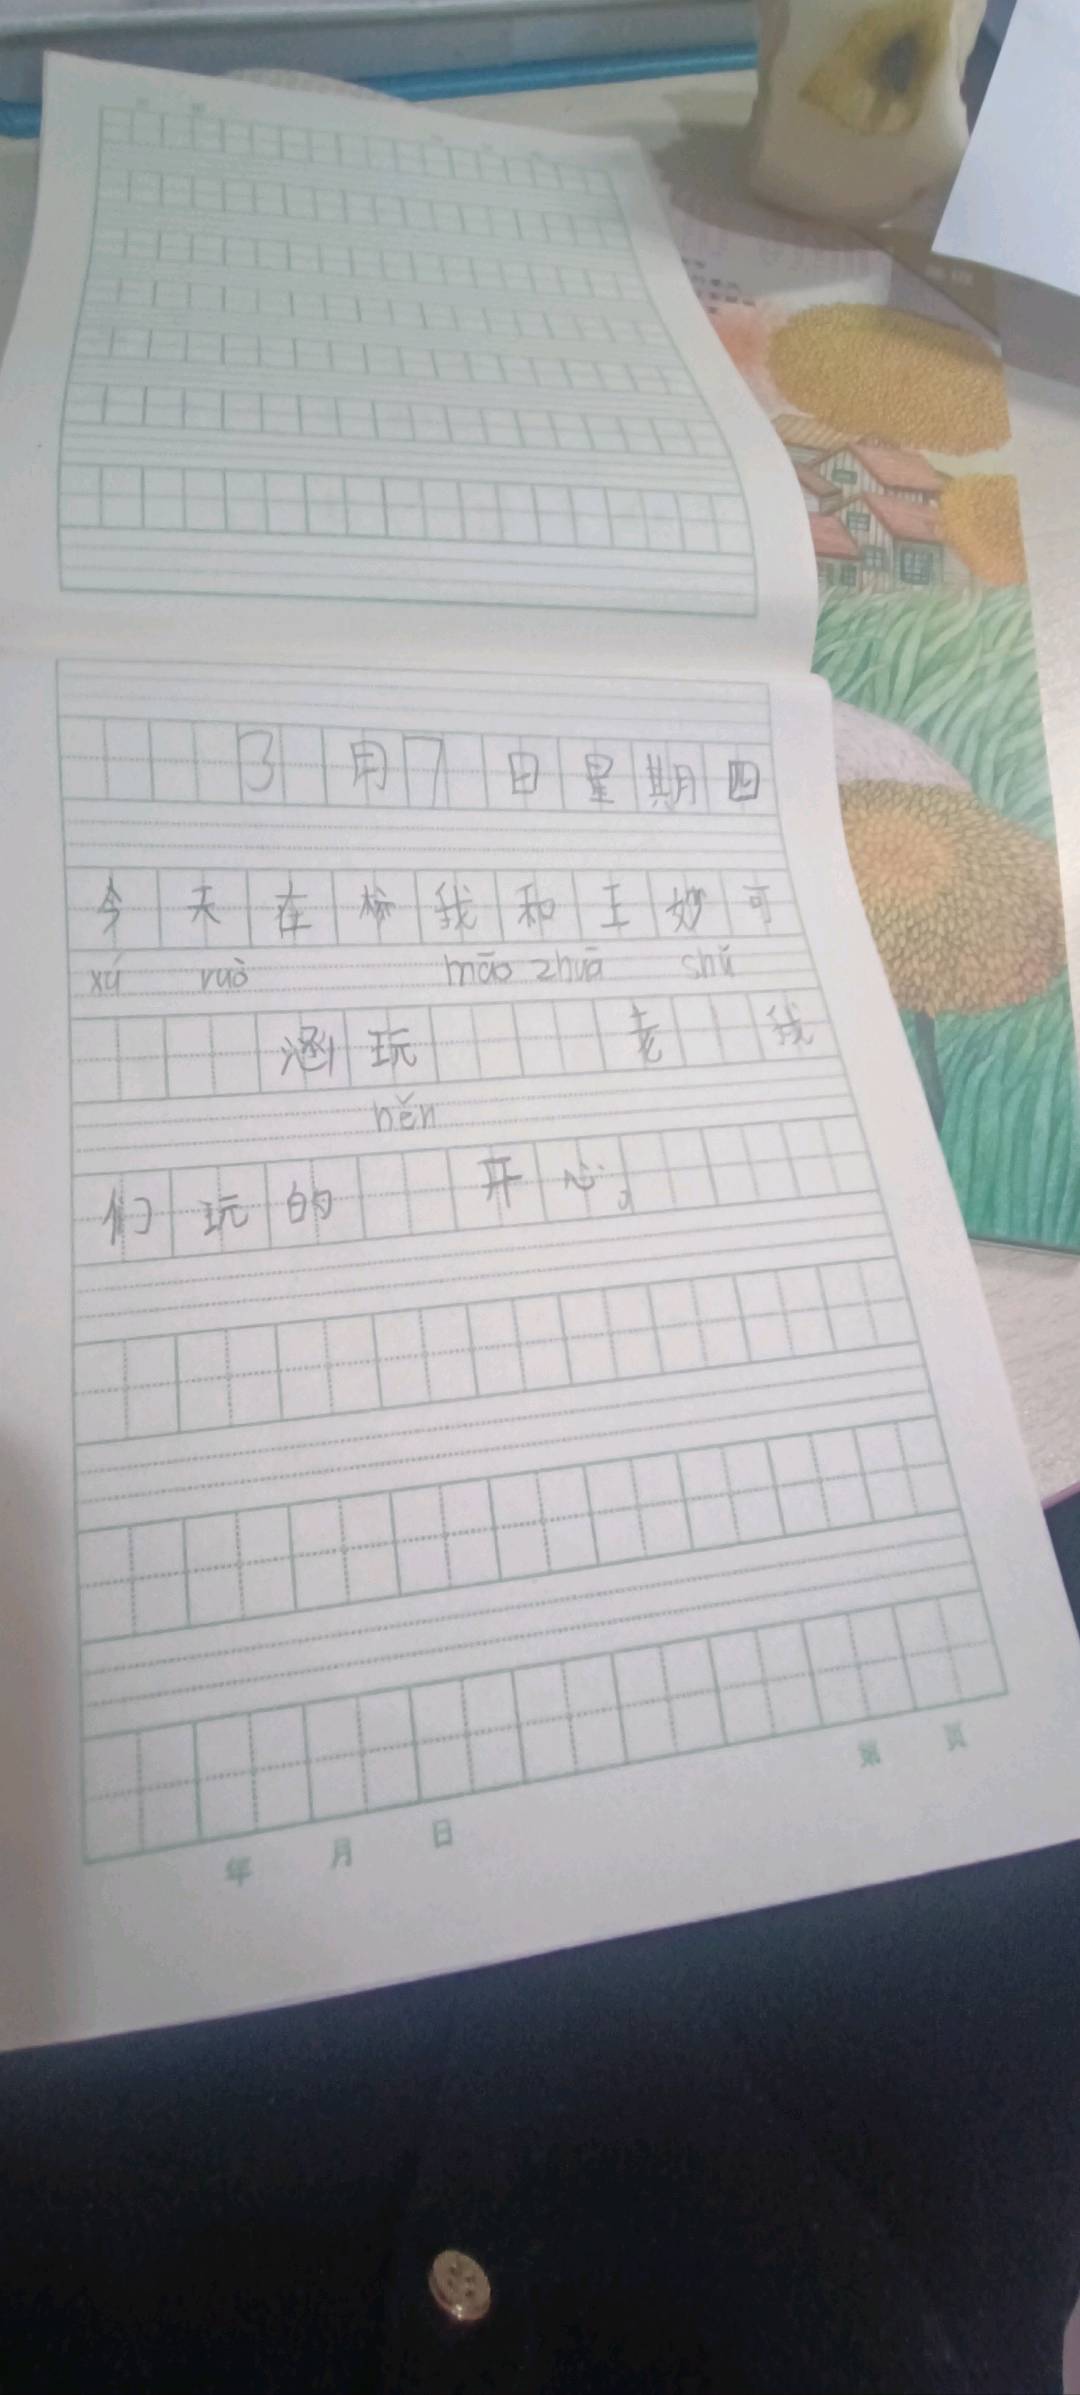 3月7日星期四
今天在校我和王妙可
xú ruò māo zhuā shǔ
涵玩 老 我
hěn
们玩的 开心。
年 月 日
第 页